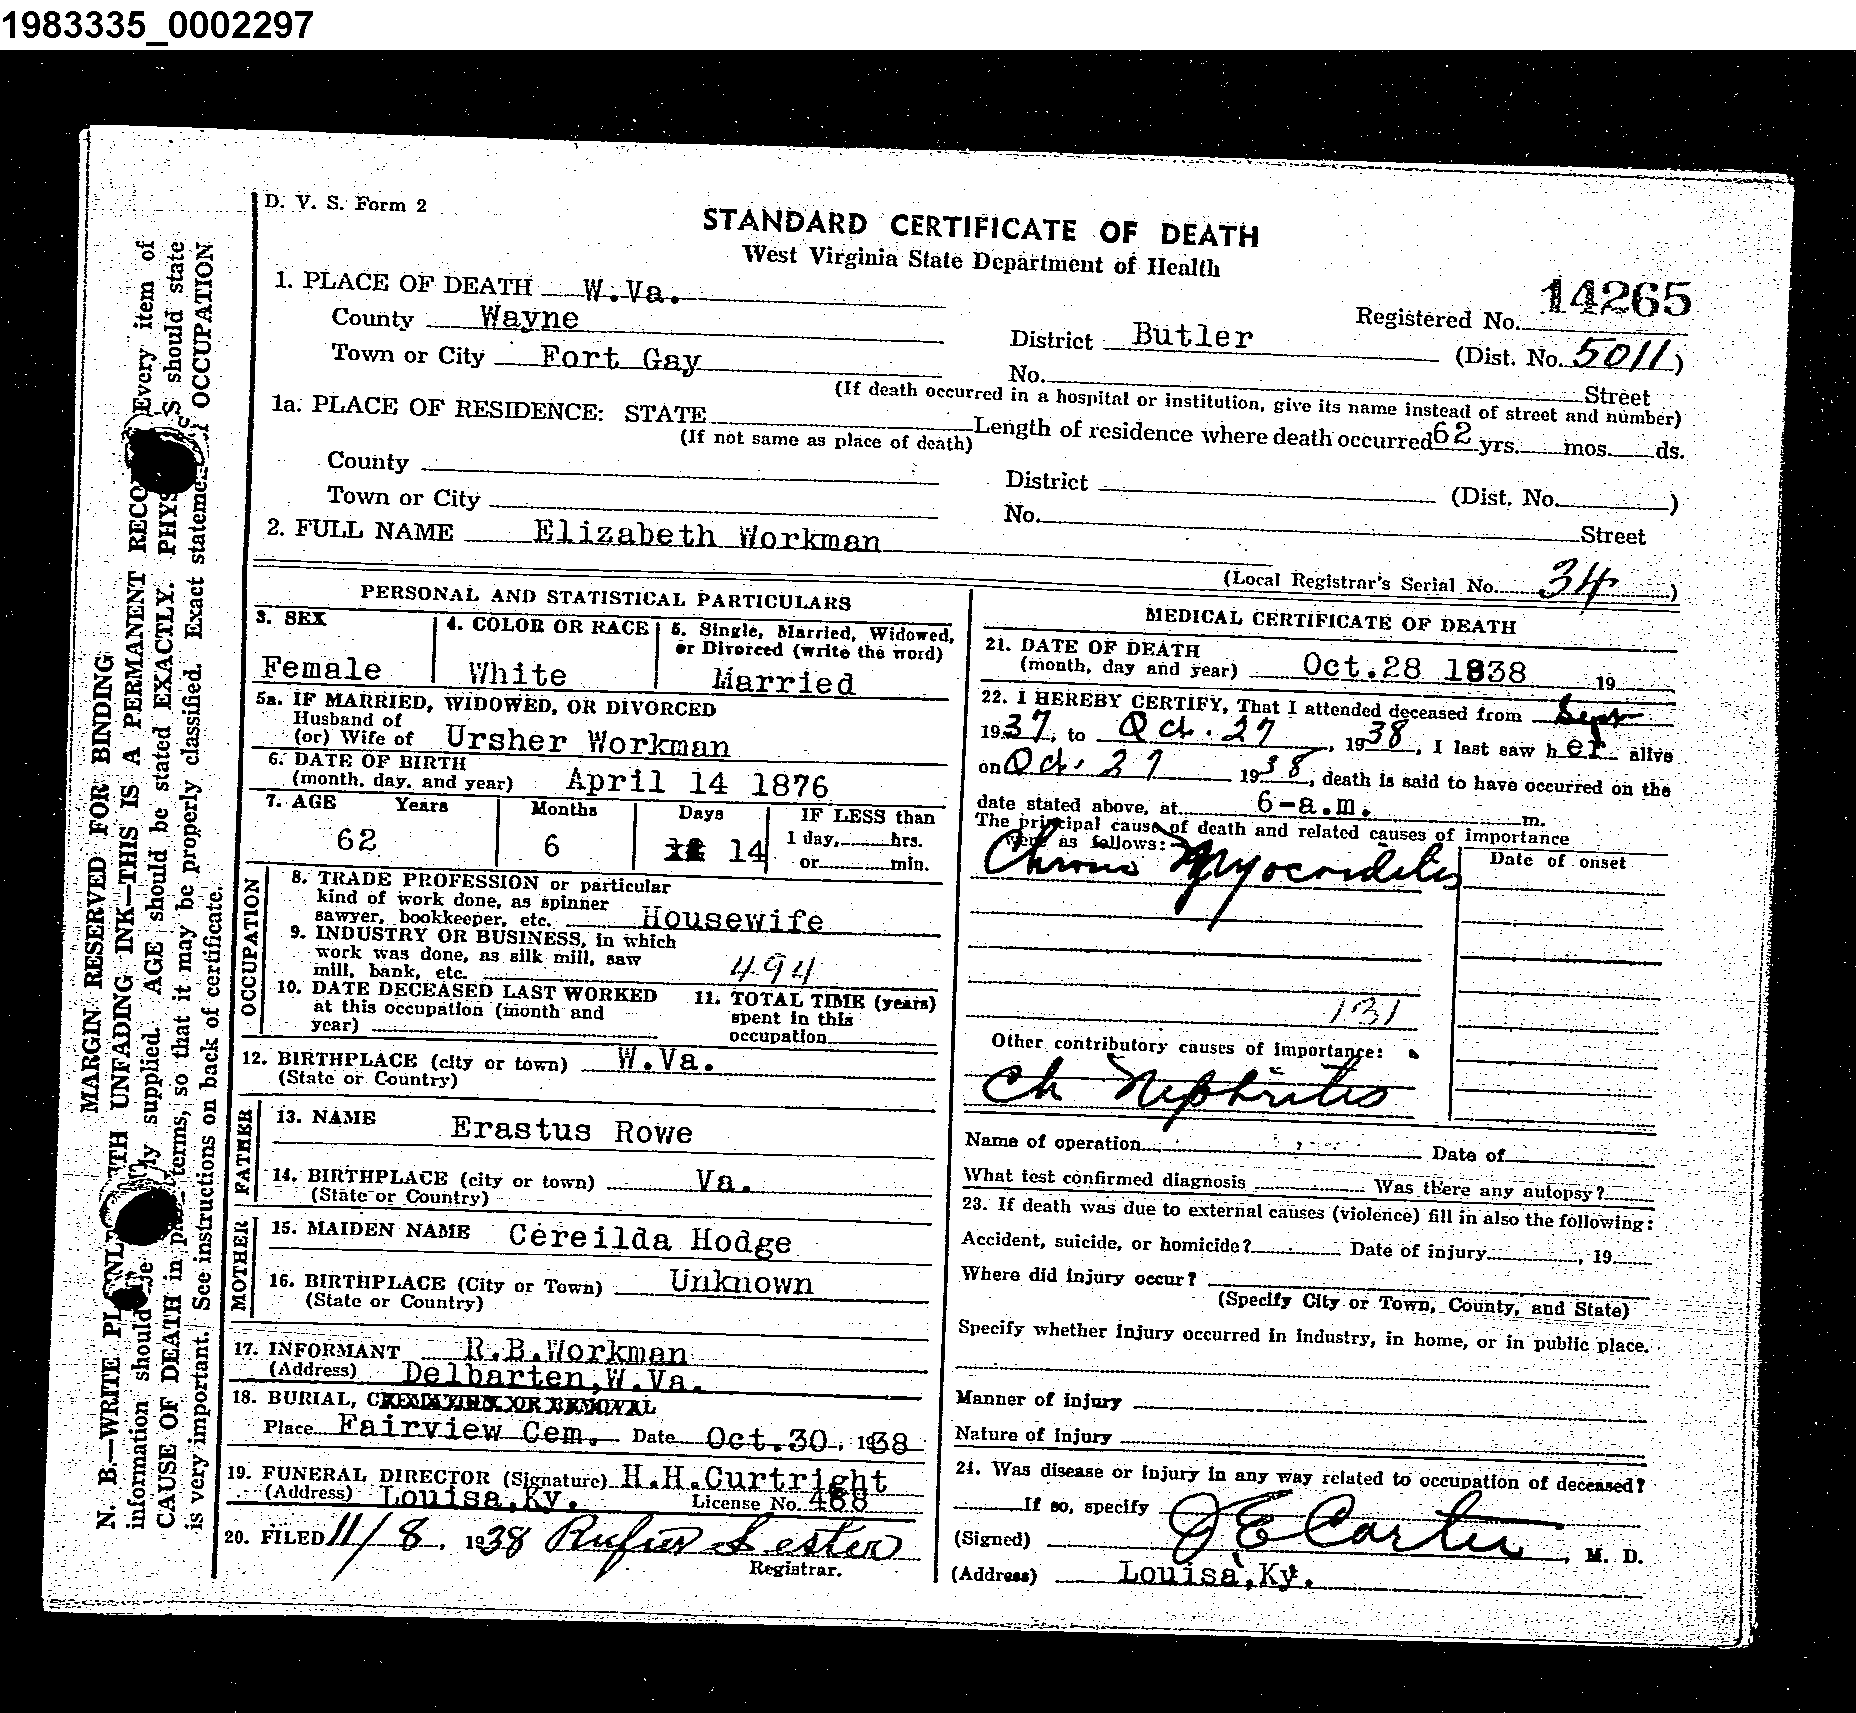 1983335_0002297
D. V. S. Form 2
STANDARD CERTIFICATE OF DEATH
West Virginia State Department of Health
14265
1. PLACE OF DEATH W.Va.
Registered No.
County Wayne
District Butler (Dist. No. 5011)
Town or City Fort Gay
No. Street
(If death occurred in a hospital or institution, give its name instead of street and number)
1a. PLACE OF RESIDENCE: STATE
(If not same as place of death)
Length of residence where death occurred 62 yrs. mos. ds.
County
District (Dist. No. )
Town or City
No. Street
2. FULL NAME Elizabeth Workman
(Local Registrar's Serial No. 34 )
PERSONAL AND STATISTICAL PARTICULARS
3. SEX
Female
4. COLOR OR RACE
White
5. Single, Married, Widowed,
or Divorced (write the word)
Married
5a. IF MARRIED, WIDOWED, OR DIVORCED
Husband of
(or) Wife of Ursher Workman
6. DATE OF BIRTH
(month, day, and year) April 14 1876
7. AGE Years Months Days IF LESS than
62 6 14 1 day, hrs.
or min.
OCCUPATION
8. TRADE PROFESSION or particular
kind of work done, as spinner
sawyer, bookkeeper, etc. Housewife
9. INDUSTRY OR BUSINESS, in which
work was done, as silk mill, saw
mill, bank, etc. 494
10. DATE DECEASED LAST WORKED
at this occupation (month and
year)
11. TOTAL TIME (years)
spent in this
occupation
12. BIRTHPLACE (city or town) W.Va.
(State or Country)
FATHER
13. NAME Erastus Rowe
14. BIRTHPLACE (city or town) Va.
(State or Country)
MOTHER
15. MAIDEN NAME Cereilda Hodge
16. BIRTHPLACE (City or Town) Unknown
(State or Country)
17. INFORMANT R.B.Workman
(Address) Delbarten,W.Va.
18. BURIAL, CREMATION OR REMOVAL
Place Fairview Cem. Date Oct.30, 1938
19. FUNERAL DIRECTOR (Signature) H.H.Curtright
(Address) Louisa,Ky. License No. 468
20. FILED 11/8, 1938 Rufus Lester
Registrar.
MEDICAL CERTIFICATE OF DEATH
21. DATE OF DEATH
(month, day and year) Oct.28 1938 19
22. I HEREBY CERTIFY, That I attended deceased from Sept
1937, to Oct. 27, 1938, I last saw her alive
on Oct. 27 1938, death is said to have occurred on the
date stated above, at 6-a.m. m.
The principal cause of death and related causes of importance
were as follows:
Date of onset
Chronic Myocarditis
131
Other contributory causes of importance:
Ch Nephritis
Name of operation Date of
What test confirmed diagnosis Was there any autopsy?
23. If death was due to external causes (violence) fill in also the following:
Accident, suicide, or homicide? Date of injury , 19
Where did injury occur?
(Specify City or Town, County, and State)
Specify whether injury occurred in industry, in home, or in public place.
Manner of injury
Nature of injury
24. Was disease or injury in any way related to occupation of deceased?
If so, specify
(Signed) J E Carter, M. D.
(Address) Louisa, Ky.
MARGIN RESERVED FOR BINDING
N. B.—WRITE UNFADING INK—THIS IS A PERMANENT Every item of
information should supplied. AGE should be stated EXACTLY. should state
CAUSE OF DEATH in terms, so that it may be properly classified. Exact OCCUPATION
is very important. See instructions on back of certificate.